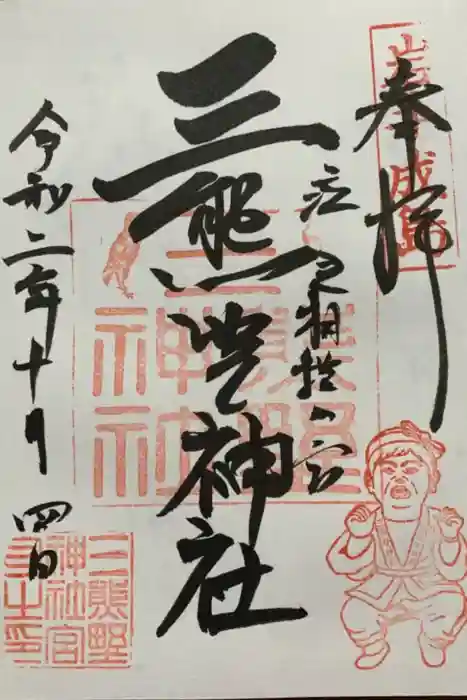 奉拝
三熊野神社
泣き相撲の宮
令和二年十月四日
三熊野
神社
三熊野
神社宮
司之印